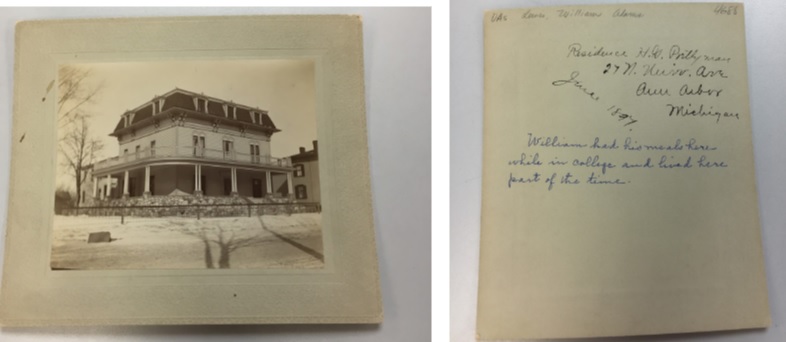 Williams 4688
Residence H.W. Prettyman
27 N. Univ. Ave
Ann Arbor
Michigan
1897
William had his meals here
while in college and lived here
part of the time.